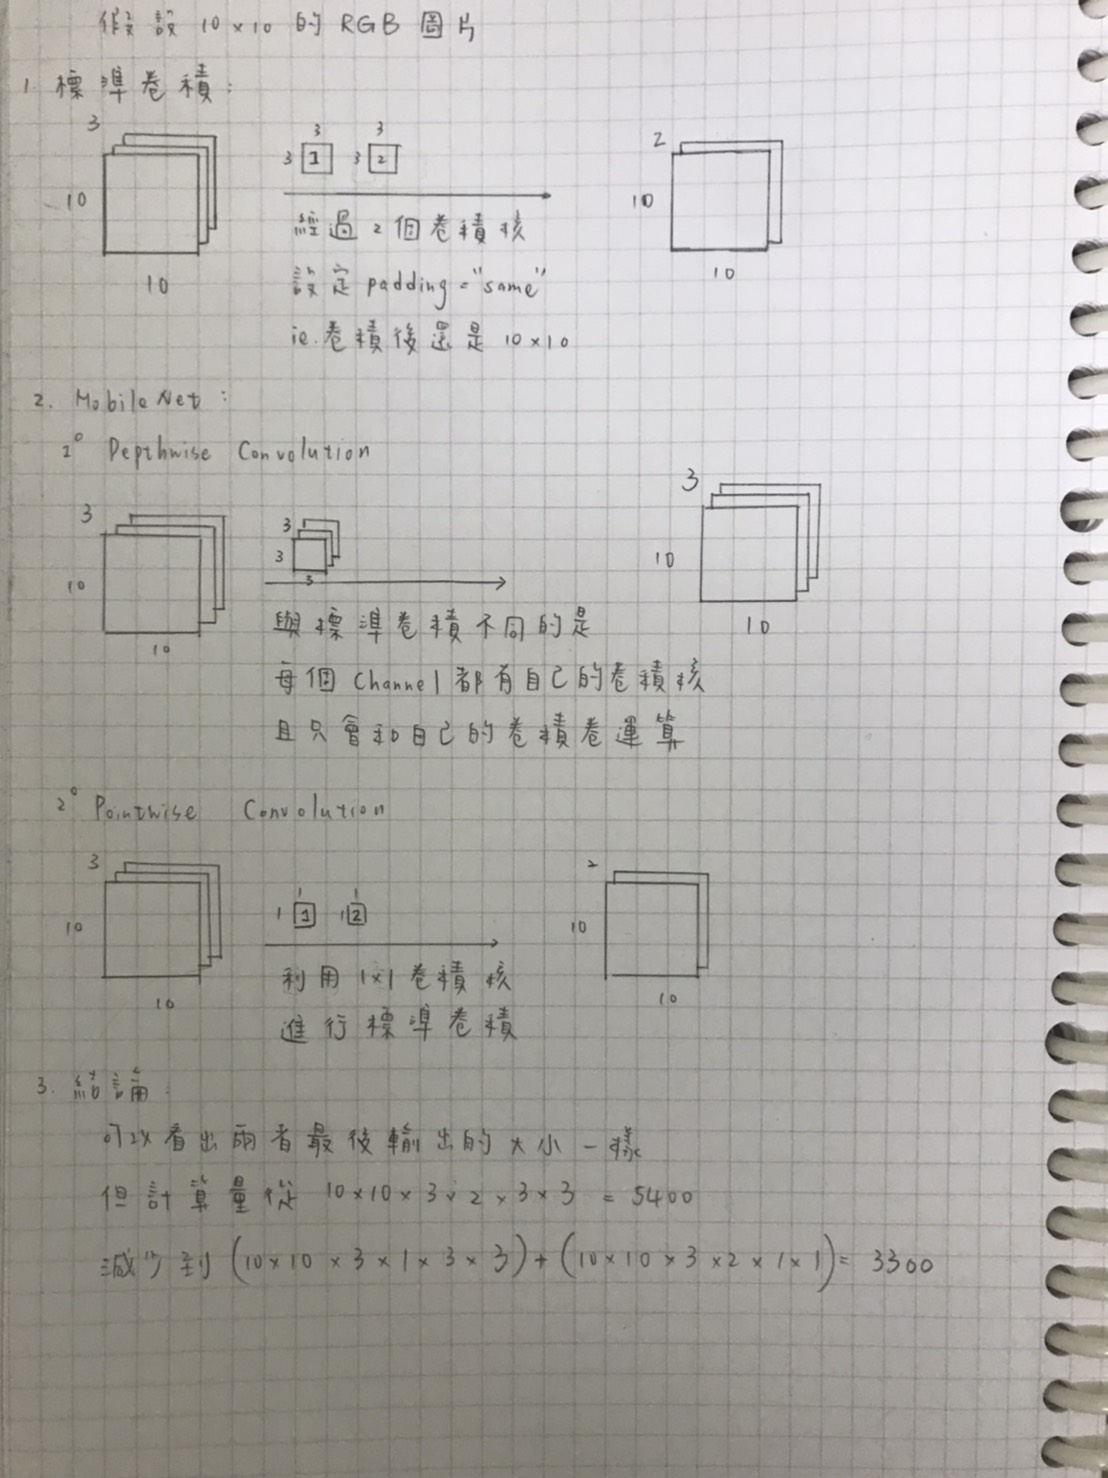 假設 10×10 的 RGB 圖片
1 標準卷積:
3
3 3
3 1 3 2
2
10
10
經過 2 個卷積核
10
10
設定 padding = "same"
ie. 卷積後還是 10×10
2. MobileNet:
1° Depthwise Convolution
3
3
3
3
3
10
10
與標準卷積不同的是
10
10
每個 Channel 都有自己的卷積核
且只會和自己的卷積卷運算
2° Pointwise Convolution
3
1 1
1 1 1 2
2
10
10
利用 1×1 卷積核
10
10
進行標準卷積
3. 結論:
可以看出兩者最後輸出的大小一樣
但計算量從 10×10×3×2×3×3 = 5400
減少到 (10×10×3×1×3×3)+(10×10×3×2×1×1)= 3300